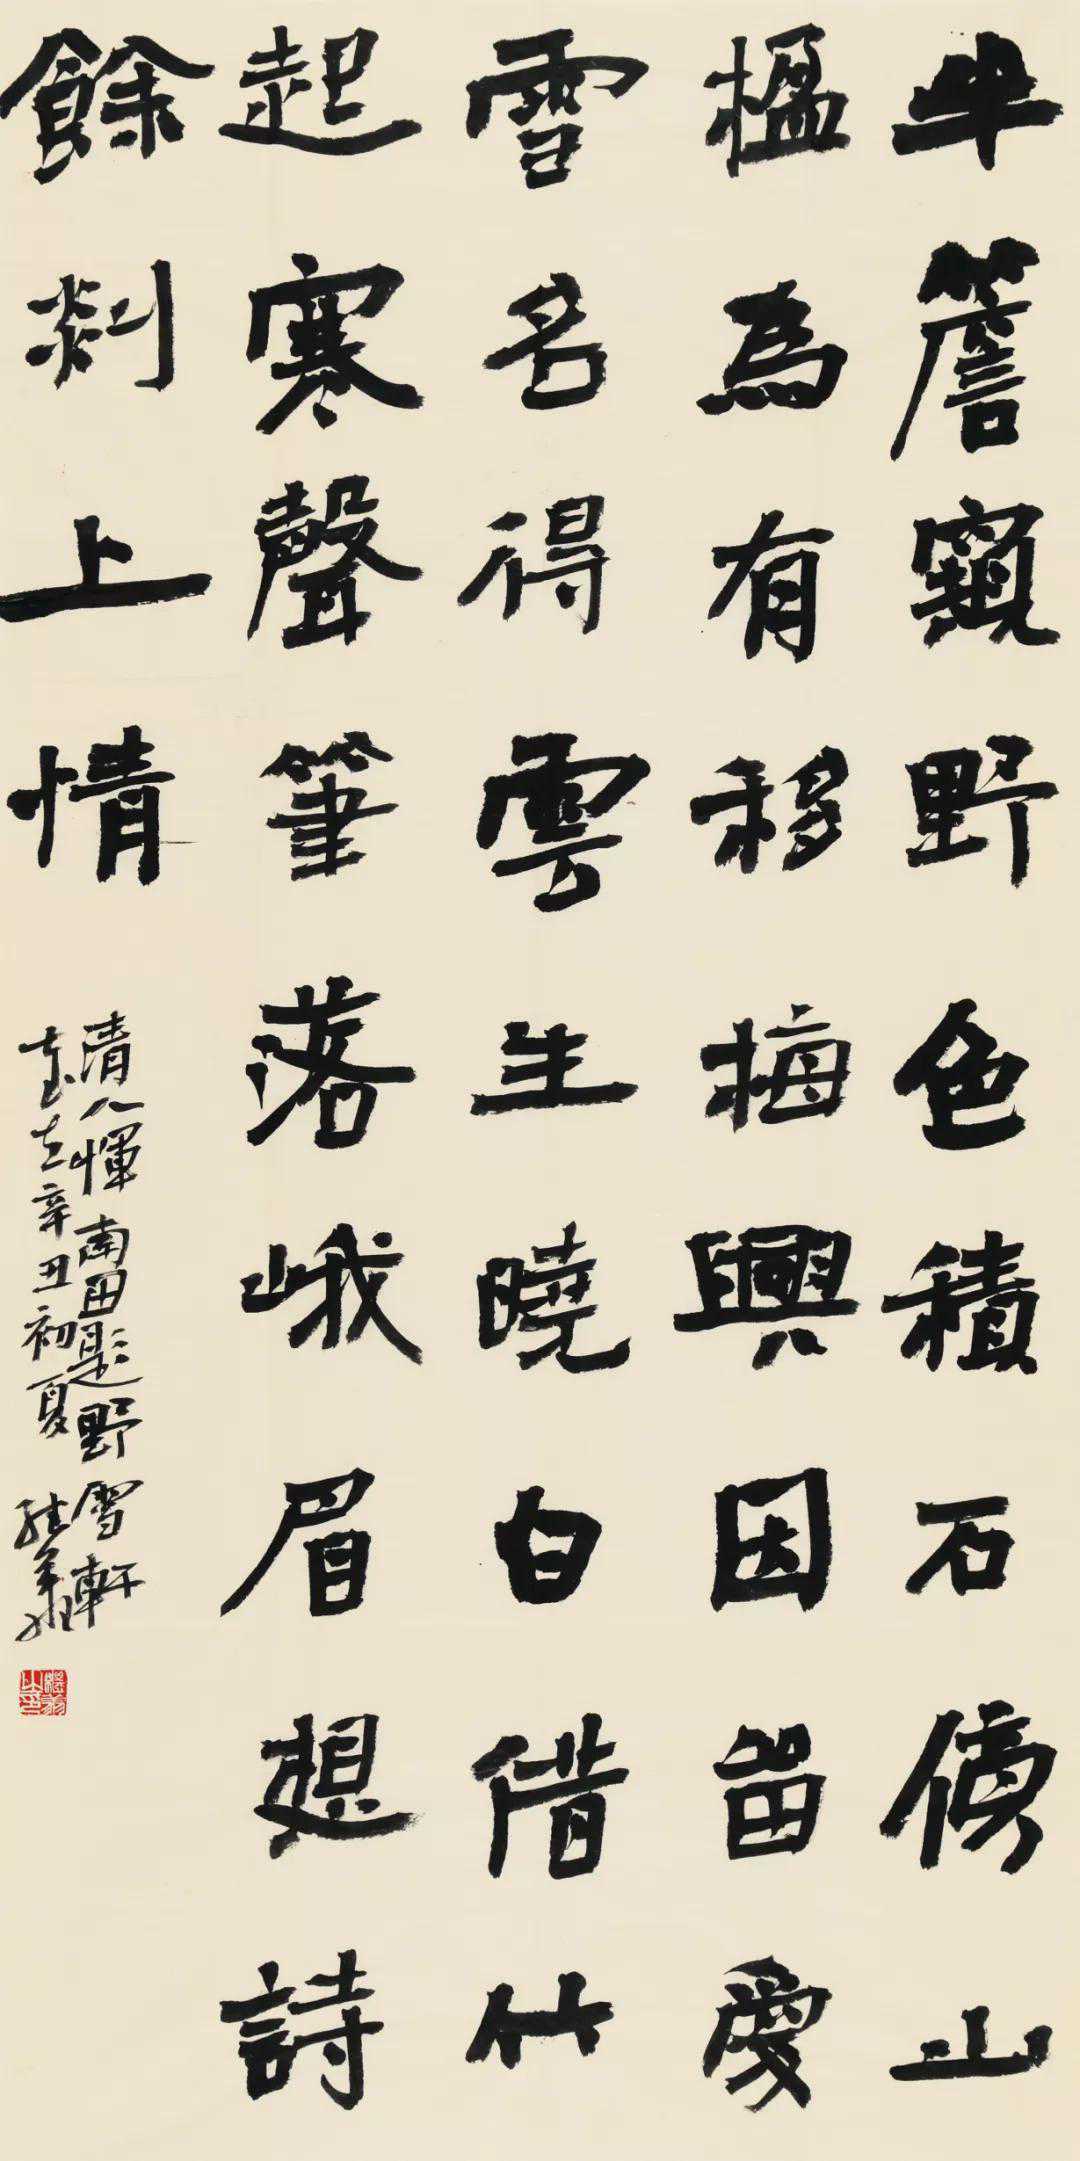 半簷窺野色積石傍山
楹為有移梅興因留愛
雪名得雲生曉白借竹
起寒聲筆落峨眉想詩
餘剡上情
清人惲南田題野雪軒
辛丑初夏